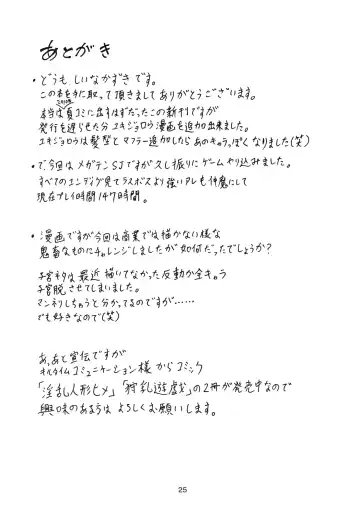 あとがき
・どうも しいなかずき です。
この本を手に取って頂きまして ありがとうございます。
2010年
本当は夏コミに出すはずだったこの新刊ですが
発行を遅らせた分 ユキジョロウ漫画を追加出来ました。
ユキジョロウは髪型と マフラー追加したら あのキャラっぽくなりました(笑)
・で、今回は メガテンSJですが久し振りに ゲームやり込みました。
すべてのエンディング見てラスボスより強いアレも仲魔にして
現在プレイ時間147時間。
・漫画ですが今回は商業では描かない様な
鬼畜なものにチャレンジしましたが 如何だったでしょうか?
子宮ネタは最近 描いてなかった反動か全キャラ
子宮脱させてしまいました。
マンネリしちゃうと分かってるのですが……
でも好きなので(笑)
あ、あと宣伝ですが
キルタイムコミュニケーション様 からコミック
「淫乱人形ヒメ」「狩乱遊戯」の2冊が発売中なので
興味のある方は よろしくお願いします。
25